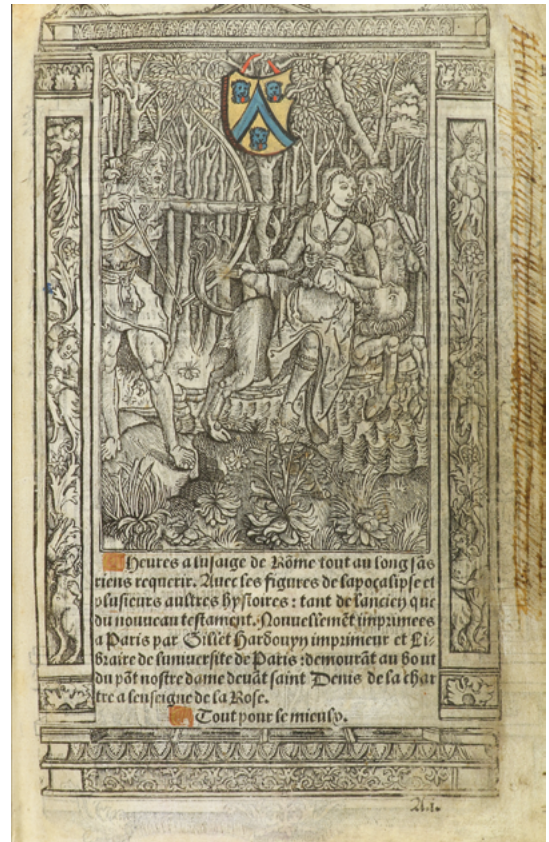 Heures a lusaige de Rõme tout au long sãs
riens requerir. Avec les figures de lapocalipse et
plusieurs aultres hystoires : tant de lanciẽ que
du nouveau testament. Nouvellemẽt imprimees
a Paris par Gillet Hardouyn imprimeur et Li-
braire de luniversite de Paris : demourãt au bout
du põt nostre dame devãt saint Denis de la char
tre a lenseigne de la Rose.
Tout pour le mieulx.
A.i.